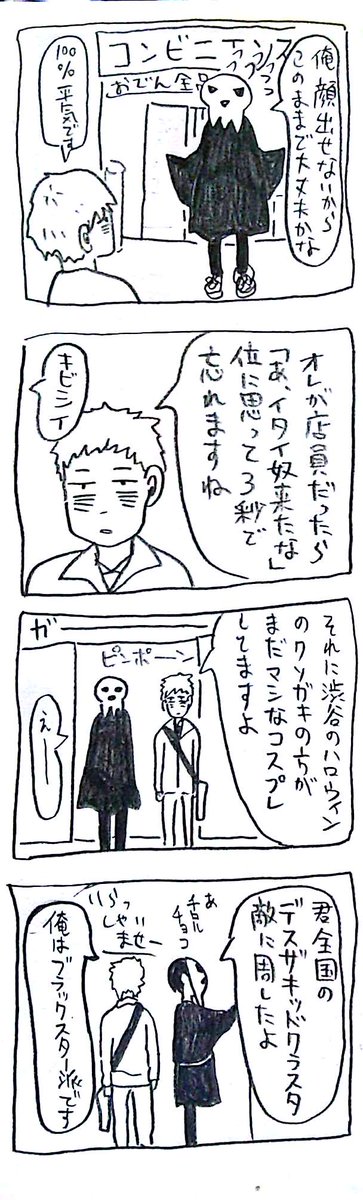 コンビニエンス
おでん全品
俺顔出せないから
このままで大丈夫かな
100%平気です
オレが店員だったら
「あ、イタイ奴来たな」
位に思って3秒で
忘れますね
キビシイ
それに渋谷のハロウィン
のクソガキの方が
まだマシなコスプレ
してますよ
ガー
ピンポーン
えー
君全国の
デスザキッドクラスタ
敵に周したよ
あ
チロル
チョコ
いらっ
しゃいませー
俺はブラックスター派です